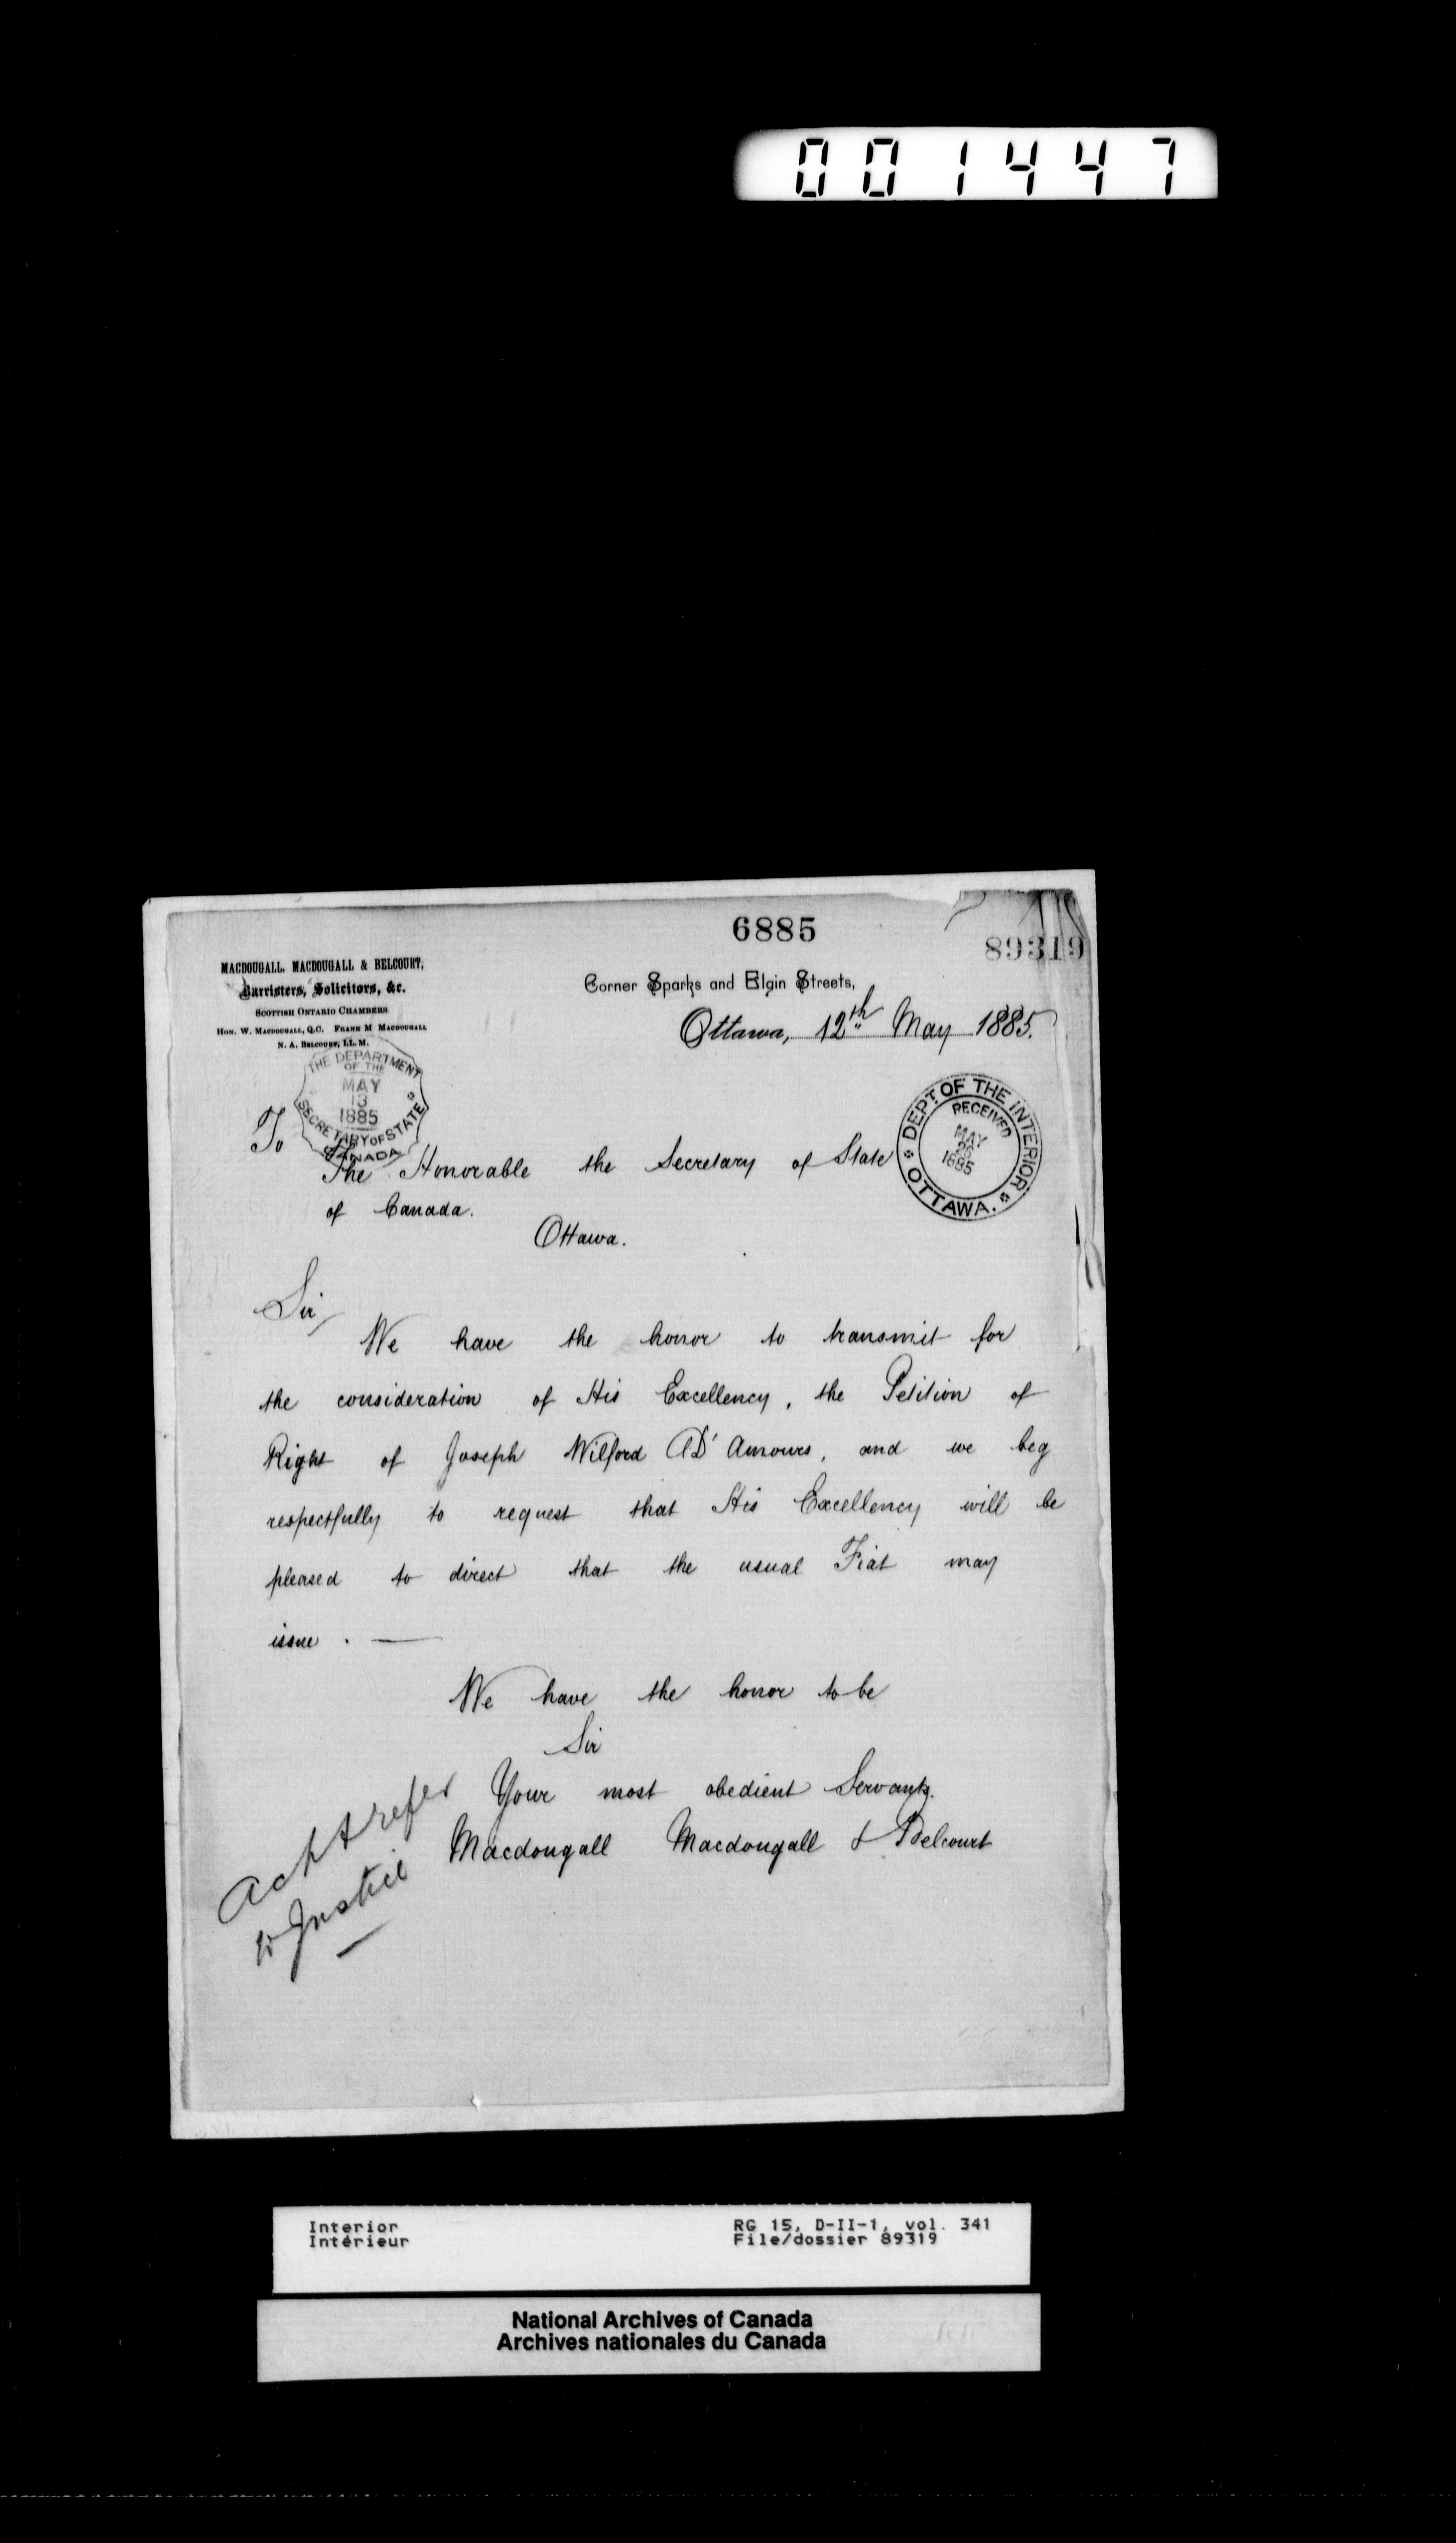 001447
6885
89319
MACDOUGALL, MACDOUGALL & BELCOURT,
Barristers, Solicitors, &c.
SCOTTISH ONTARIO CHAMBERS
HON. W. MACDOUGALL, Q.C. FRANK M MACDOUGALL
N. A. BELCOURT, LL.M.
Corner Sparks and Elgin Streets,
Ottawa, 12th May 1885.
THE DEPARTMENT
OF THE
MAY
13
1885
SECRETARY OF STATE
CANADA
DEPT. OF THE INTERIOR
RECEIVED
MAY
26
1885
OTTAWA.
To
The Honorable the Secretary of State
of Canada.
Ottawa.
Sir
We have the honor to transmit for
the consideration of His Excellency, the Petition of
Right of Joseph Wilford D'Amours, and we beg
respectfully to request that His Excellency will be
pleased to direct that the usual Fiat may
issue. —
We have the honor to be
Sir
Your most obedient Servants.
Macdougall Macdougall & Belcourt
Ack & refer
to Justice
Interior
Intérieur
RG 15, D-II-1, vol. 341
File/dossier 89319
National Archives of Canada
Archives nationales du Canada